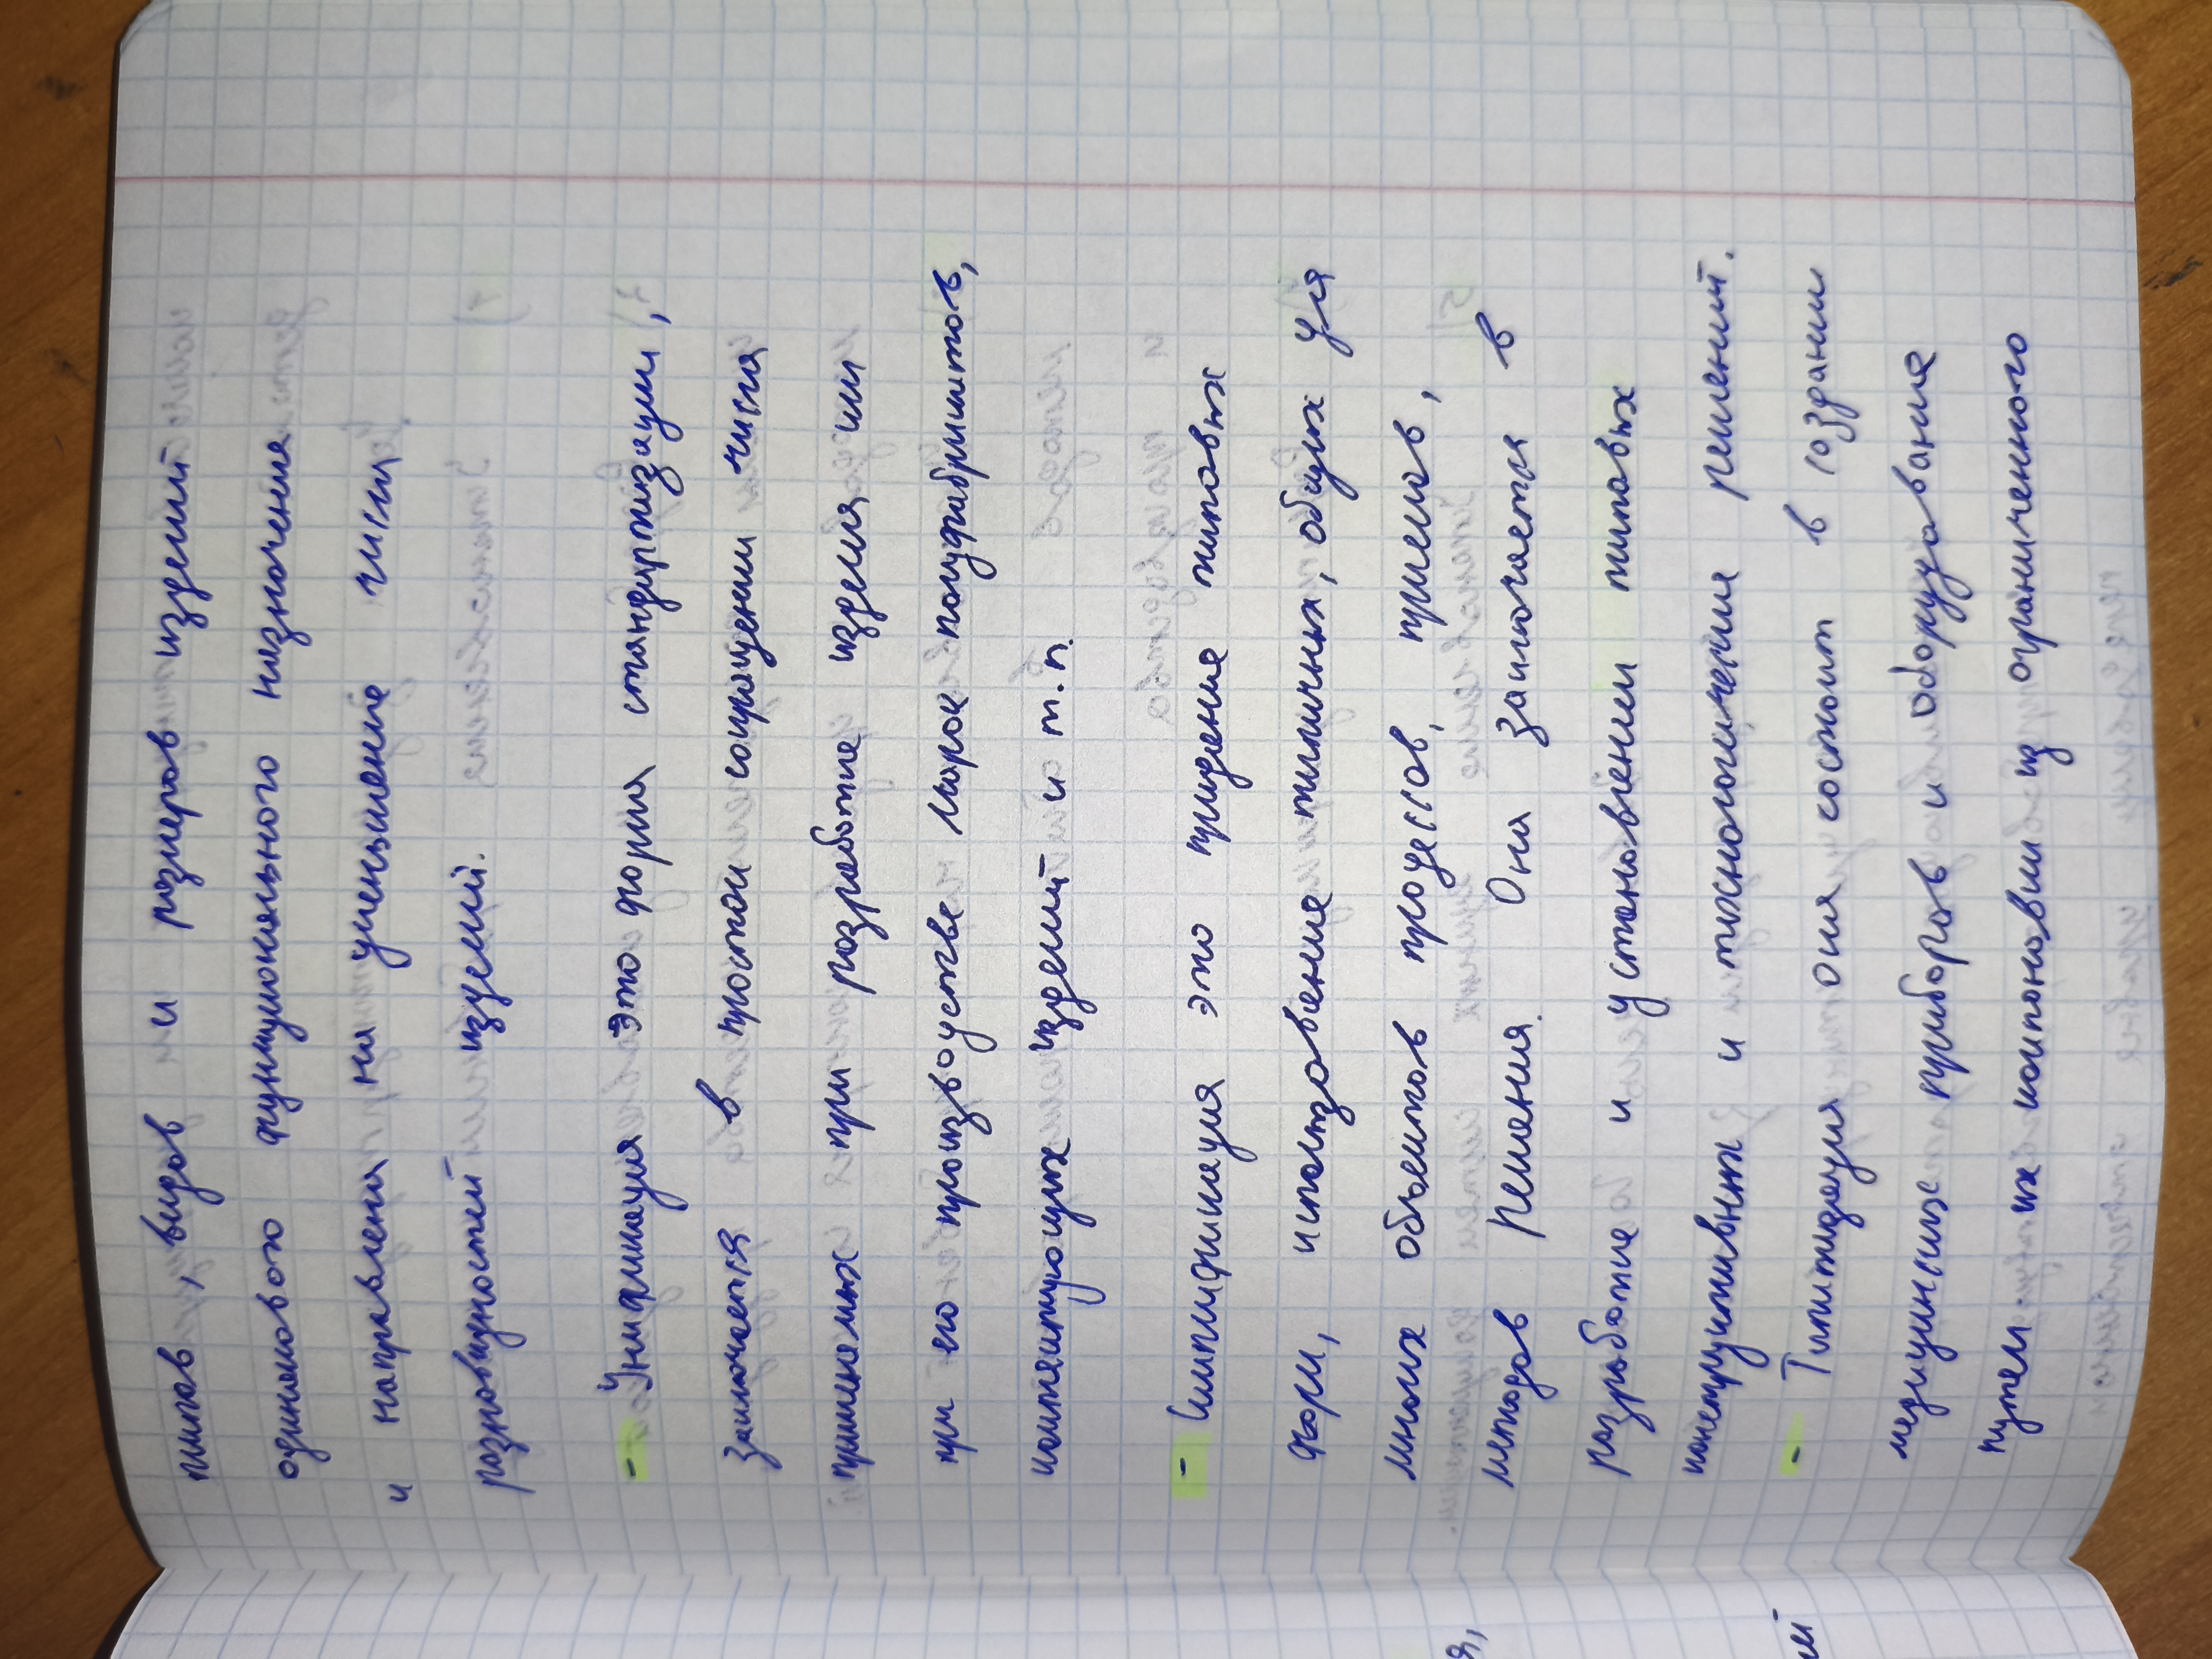 типов, видов и размеров изделий
одинакового функционального назначения
и направлена на уменьшение числа
разновидностей изделий.
- Унификация это форма стандартизации,
заключается в простом сокращении числа
применемых при разработке изделия или
при его производстве марок полуфабрикатов,
комплектующих изделий и т.п.
- Симплификация это придение типовых
форм, использование типичных, общих для
многих объектов процессов, приемов,
методов решения. Она заключается в
разработке и установлении типовых
конструктивных и технологические решений.
- Типитизация она состоит в создании
медицинских приборов и оборудование
путем их компоновки из ограниченного
я,
ий